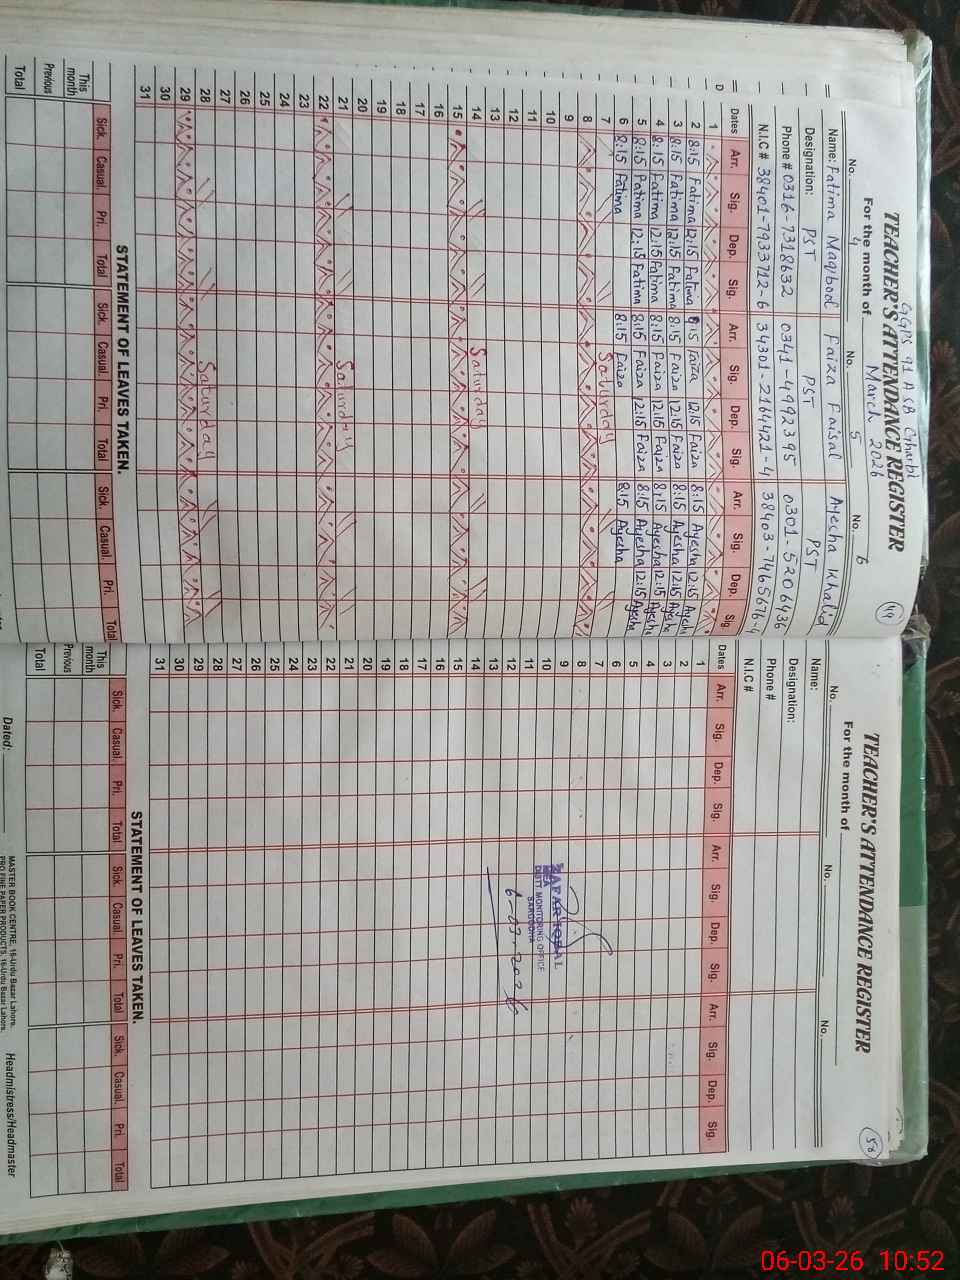 GGPS 91 A SB Gharbi
TEACHER'S ATTENDANCE REGISTER
For the month of March 2026
49
No. 4 No. 5 No. 6
Name: Fatima Maqbool Faiza Faisal Ayesha Khalid
Designation: PST PST PST
Phone # 0316-7318632 0341-4992395 0301-5206436
N.I.C # 38401-7933712-6 34301-2164421-4 38403-7465676-4
Dates Arr. Sig. Dep. Sig. Arr. Sig. Dep. Sig. Arr. Sig. Dep. Sig.
1
2 8:15 Fatima 12:15 Fatima 8:15 Faiza 12:15 Faiza 8:15 Ayesha 12:15 Ayesha
3 8:15 Fatima 12:15 Fatima 8:15 Faiza 12:15 Faiza 8:15 Ayesha 12:15 Ayesha
4 8:15 Fatima 12:15 Fatima 8:15 Faiza 12:15 Faiza 8:15 Ayesha 12:15 Ayesha
5 8:15 Fatima 12:15 Fatima 8:15 Faiza 12:15 Faiza 8:15 Ayesha 12:15 Ayesha
6 8:15 Fatima 8:15 Faiza 8:15 Ayesha
7 Saturday
8
9
10
11
12
13
14 Saturday
15
16
17
18
19
20
21 Saturday
22
23
24
25
26
27
28 Saturday
29
30
31
STATEMENT OF LEAVES TAKEN.
Sick. Casual. Pri. Total Sick. Casual. Pri. Total Sick. Casual. Pri. Total
This month
Previous
Total
TEACHER'S ATTENDANCE REGISTER
For the month of
50
No. No. No.
Name:
Designation:
Phone #
N.I.C #
Dates Arr. Sig. Dep. Sig. Arr. Sig. Dep. Sig. Arr. Sig. Dep. Sig.
1
2
3
4
5
6
7
8
9
10
11
12
13
14
15
16
17
18
19
20
21
22
23
24
25
26
27
28
29
30
31
ZAFAR IQBAL
MEA
DISTT MONITORING OFFICE
SARGODHA
6-03-2026
STATEMENT OF LEAVES TAKEN.
Sick. Casual. Pri. Total Sick. Casual. Pri. Total Sick. Casual. Pri. Total
This month
Previous
Total
Dated:
MASTER BOOK CENTRE, 16-Urdu Bazar Lahore.
PRO FINE PAPER PRODUCTS, 16-Urdu Bazar Lahore.
Headmistress/Headmaster
06-03-26 10:52